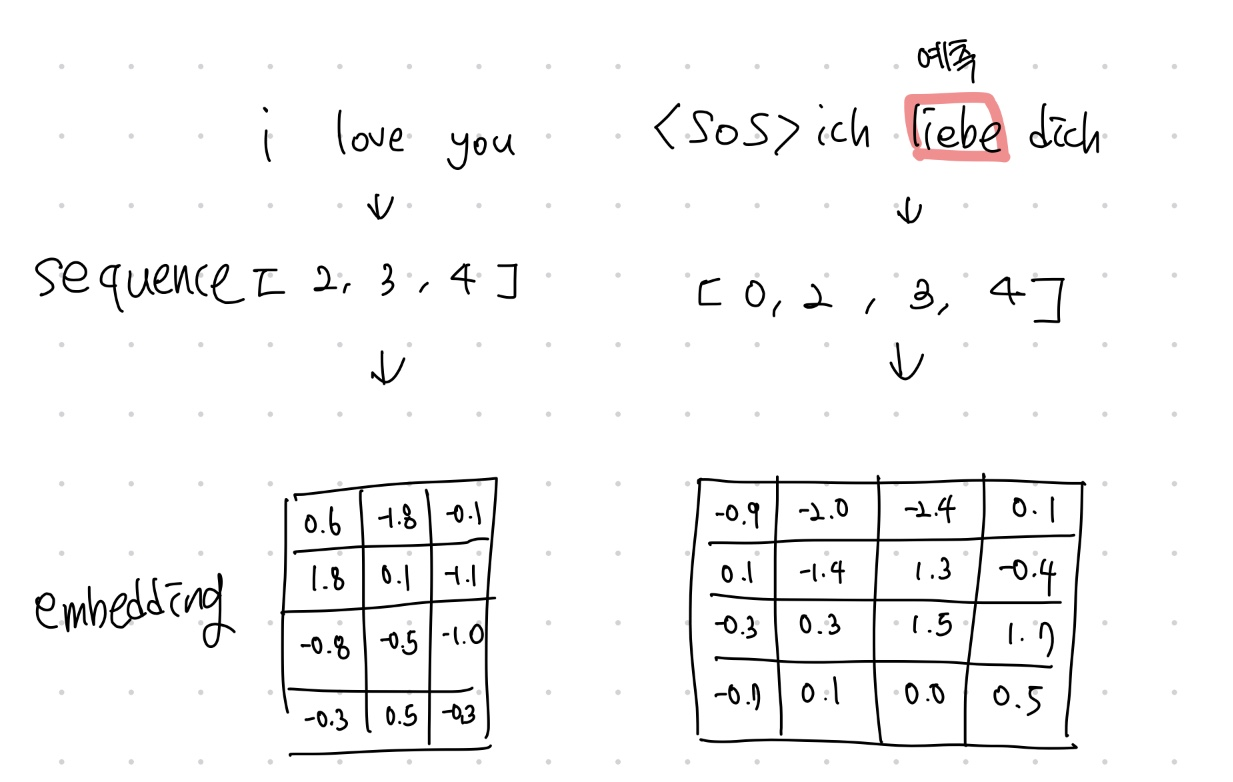 예측
i love you <SOS> ich liebe dich
sequence [ 2, 3, 4 ] [ 0, 2, 3, 4 ]
embedding
0.6 -1.8 -0.1 -0.9 -2.0 -2.4 0.1
1.8 0.1 -1.1 0.1 -1.4 1.3 -0.4
-0.8 -0.5 -1.0 -0.3 0.3 1.5 1.7
-0.3 0.5 -0.3 -0.7 0.1 0.0 0.5